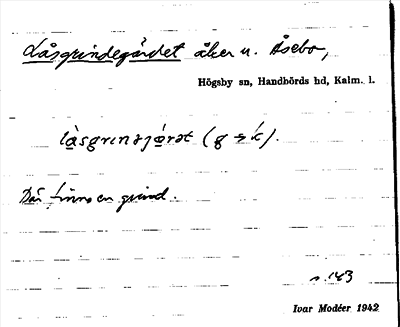 Låsgrindegärdet åker u. Åsebo,
Högsby sn, Handbörds hd, Kalm. l.
Där finns en grind.
s. 143
Ivar Modéer 1942